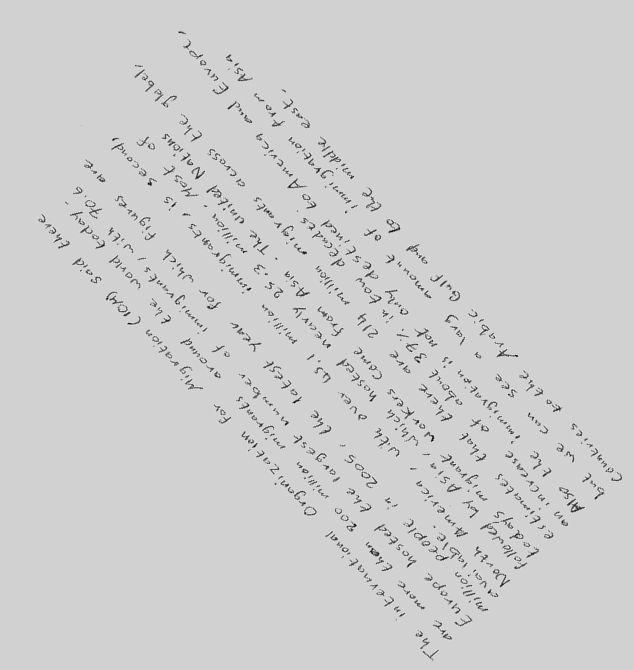 The international Organization for Migration (IOM) said there
are more than 200 million migrants around the world today,
Europe hosted the largest number of immigrants, with 70.6
million people in 2005, the latest year for which figures are
available.
North America, with over 45.1 million immigrants, is second,
followed by Asia, which hosted nearly 25.3 million. Most of
todays migrant workers come from Asia. The united Nations
estimates that there are 214 million migrants across the global,
an increase of about 37% in tow decades
Also the immigration is not only destined to America and Europe,
but we can see a larg amount of immigration from Asia
Countries to the Arabic Gulf and to the middle east.